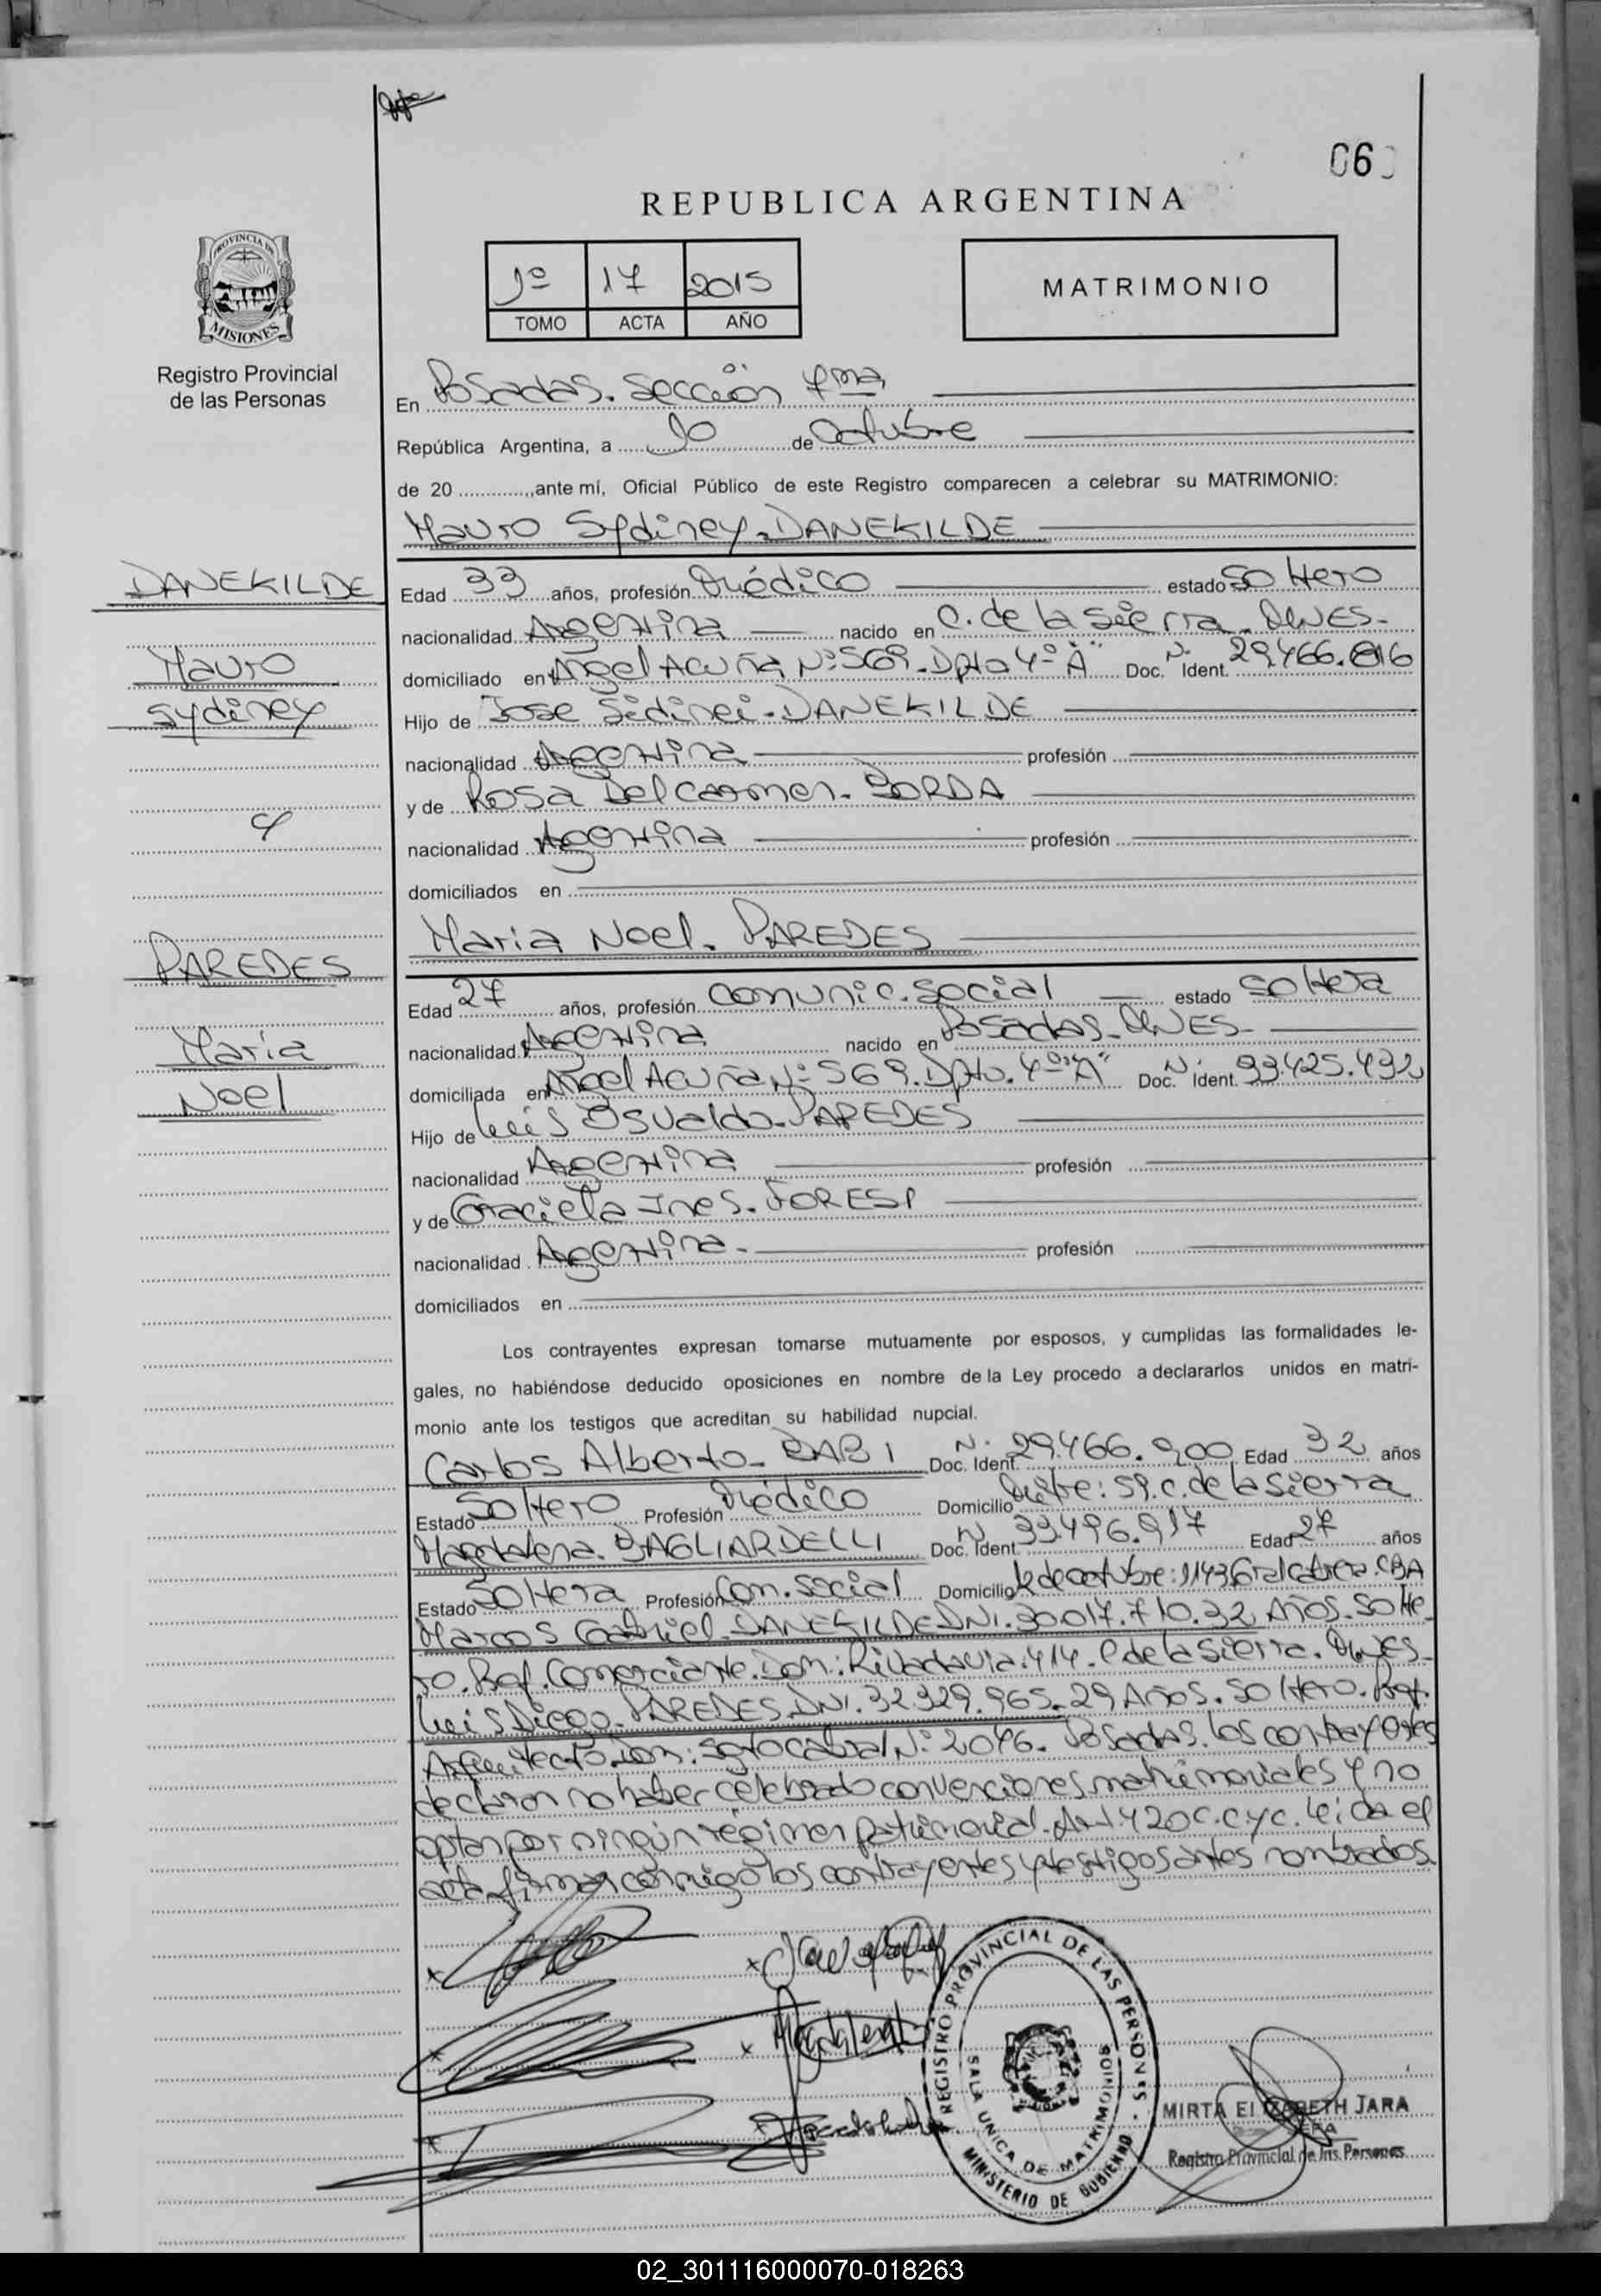 REPUBLICA ARGENTINA
PROVINCIA DE
MISIONES
Registro Provincial
de las Personas
1º 17 2015
TOMO ACTA AÑO
MATRIMONIO
En Posadas. Sección 7ma
República Argentina, a de Octubre
de 20 ,ante mí, Oficial Público de este Registro comparecen a celebrar su MATRIMONIO:
Mauro Sydiney. DANEKILDE
DANEKILDE
Mauro
Sydiney
Edad 33 años, profesión Médico estado Soltero
nacionalidad Argentina nacido en C. de la Sierra. MNES-
domiciliado en Angel Acuña Nº 569. Dpto 4º "A" Doc. Nº Ident. 29.466.816
Hijo de Jose Sidinei. DANEKILDE
nacionalidad Argentina profesión
y de Rosa Del Carmen. BORDA
nacionalidad Argentina profesión
domiciliados en
Maria Noel. PAREDES
PAREDES
María
Noel
Edad 27 años, profesión Comunic. Social estado Soltera
nacionalidad Argentina nacido en Posadas. MNES-
domiciliada en Angel Acuña Nº 569. Dpto. 4º "A" Doc. Nº Ident. 33.425.432
Hijo de Luis Osvaldo. PAREDES
nacionalidad Argentina profesión
y de Graciela Ines.
nacionalidad Argentina. profesión
domiciliados en
Los contrayentes expresan tomarse mutuamente por esposos, y cumplidas las formalidades le-
gales, no habiéndose deducido oposiciones en nombre de la Ley procedo a declararlos unidos en matri-
monio ante los testigos que acreditan su habilidad nupcial.
Carlos Alberto. Doc. Nº Ident. 29.466.900 Edad 32 años
Estado Soltero Profesión Médico Domicilio Mitre: C. de la Sierra
Magdalena. BAGLIARDELLI Doc. Nº Ident. 33.496.917 Edad 27 años
Estado Soltera Profesión Com. Social Domicilio 12 de octubre: 1143 Gral Cabrera. CBA
Marcos Gabriel. DANEKILDE DNI. 30.017.710. 32 Años. Solte-
ro. Prof. Comerciante. Dom: Rivadavia: 414. C de la Sierra. MNES-
Luis Diego. PAREDES. DNI. 32.329.965. 29 Años. Soltero. Prof.
Arquitecto. Dom: Sgto Cabral Nº 2076. Posadas. los contrayentes
declaran no haber celebrado convenciones matrimoniales y no
optan por ningún régimen patrimonial. Art. 420 C.C.yC. Leída el
acta firman conmigo los contrayentes y testigos antes nombrados.
REGISTRO PROVINCIAL DE LAS PERSONAS
SALA UNICA DE MATRIMONIOS
MINISTERIO DE GOBIERNO
MIRTA ELIZABETH JARA
Registro Provincial de las Personas
02_301116000070-018263